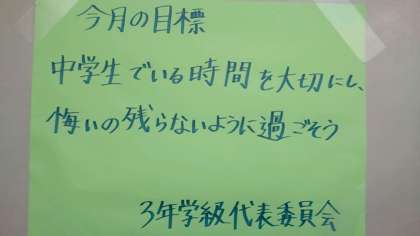 今月の目標
中学生でいる時間を大切にし、
悔いの残らないように過ごそう
3年学級代表委員会